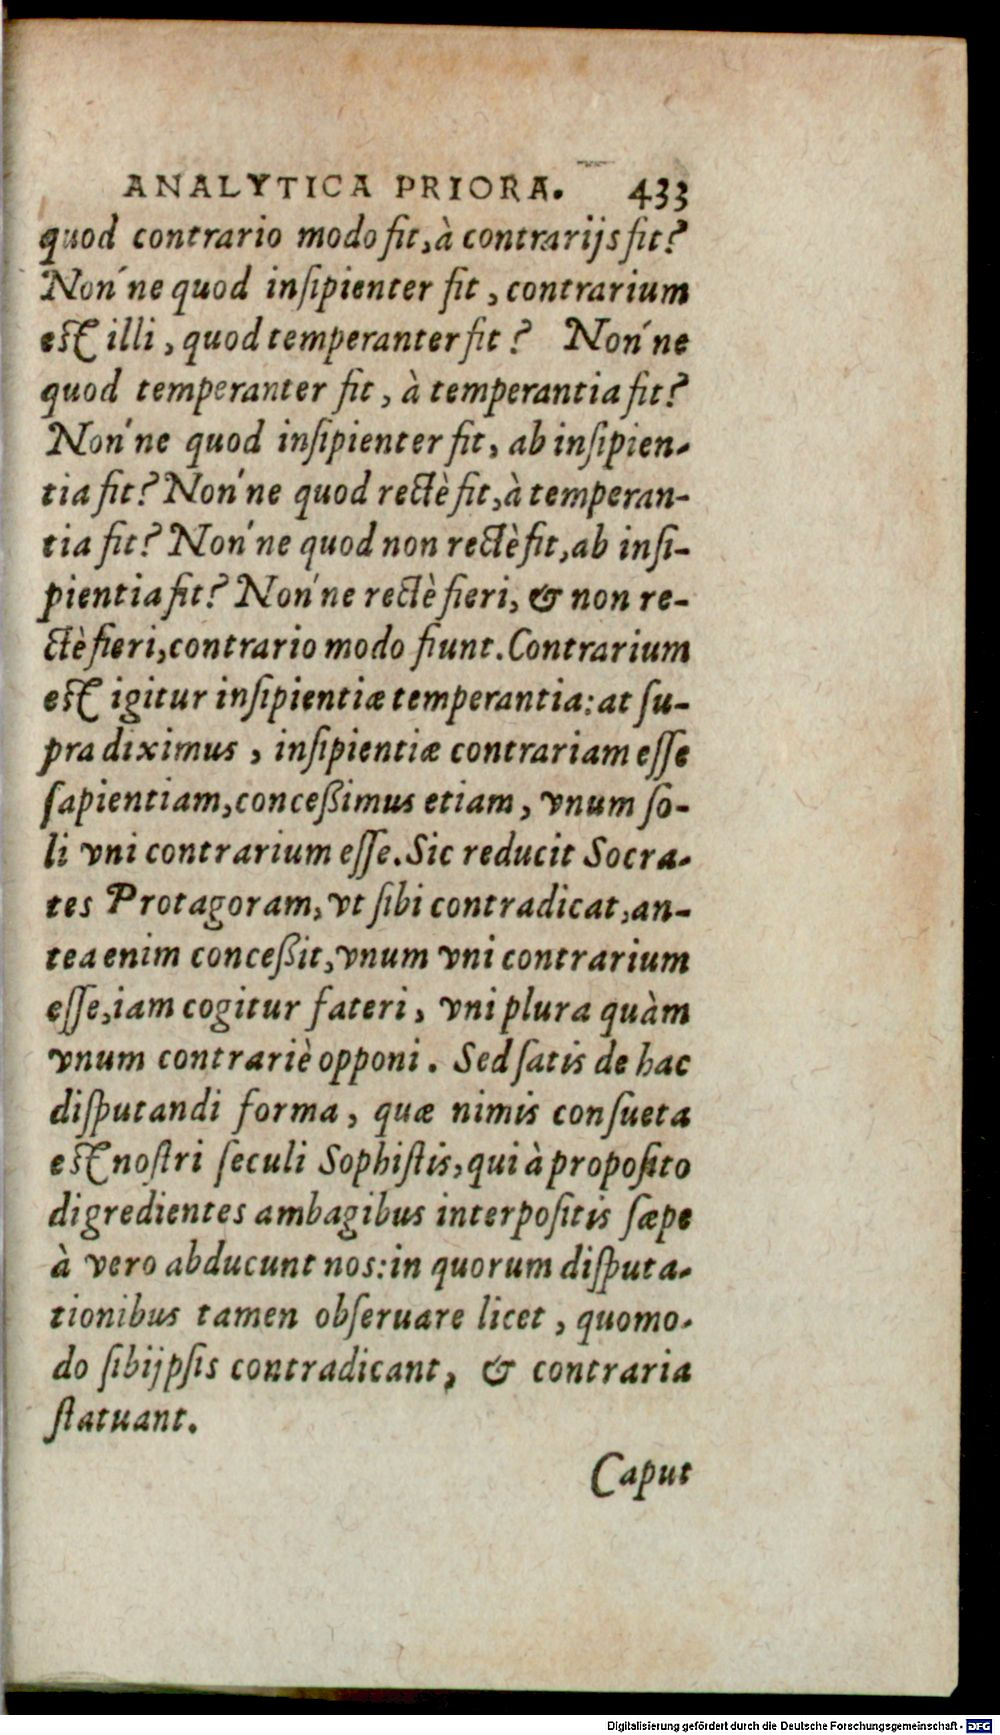 ANALYTICA PRIORA. 433
quod contrario modo fit, à contrarijs fit?
Non´ne quod insipienter fit, contrarium
est illi, quod temperanter fit? Non´ne
quod temperanter fit, à temperantia fit?
Non´ne quod insipienter fit, ab insipien-
tia fit? Non´ne quod rectè fit, à temperan-
tia fit? Non´ne quod non rectè fit, ab insi-
pientia fit? Non´ne rectè fieri, & non re-
ctè fieri, contrario modo fiunt. Contrarium
est igitur insipientiæ temperantia: at su-
pra diximus, insipientiæ contrariam esse
sapientiam, conceßimus etiam, vnum so-
li vni contrarium esse. Sic reducit Socra-
tes Protagoram, vt sibi contradicat, an-
tea enim conceßit, vnum vni contrarium
esse, iam cogitur fateri, vni plura quàm
vnum contrariè opponi. Sed satis de hac
disputandi forma, quæ nimis consueta
est nostri seculi Sophistis, qui à proposito
digredientes ambagibus interpositis sæpe
à vero abducunt nos: in quorum disputa-
tionibus tamen obseruare licet, quomo-
do sibijpsis contradicant, & contraria
statuant.
Caput
Digitalisierung gefördert durch die Deutsche Forschungsgemeinschaft - DFG